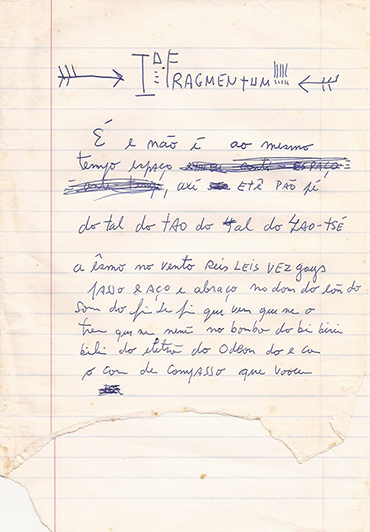 I D: FRAGMENTUM!!!!
É e não é ao mesmo
tempo espaço anti-ESPAÇO
anti tempo, axé Etê PÃO pé
do tal do TAO do tal do LAO-TSÉ
a êsmo no vento Reis LEIS VEZ gays
passo e aço e abraço no dom do
som do fi de fi que vem que se o
trem que se nem no bombo do bi biri
bili do do Odeon do e com
o com de compasso que voou